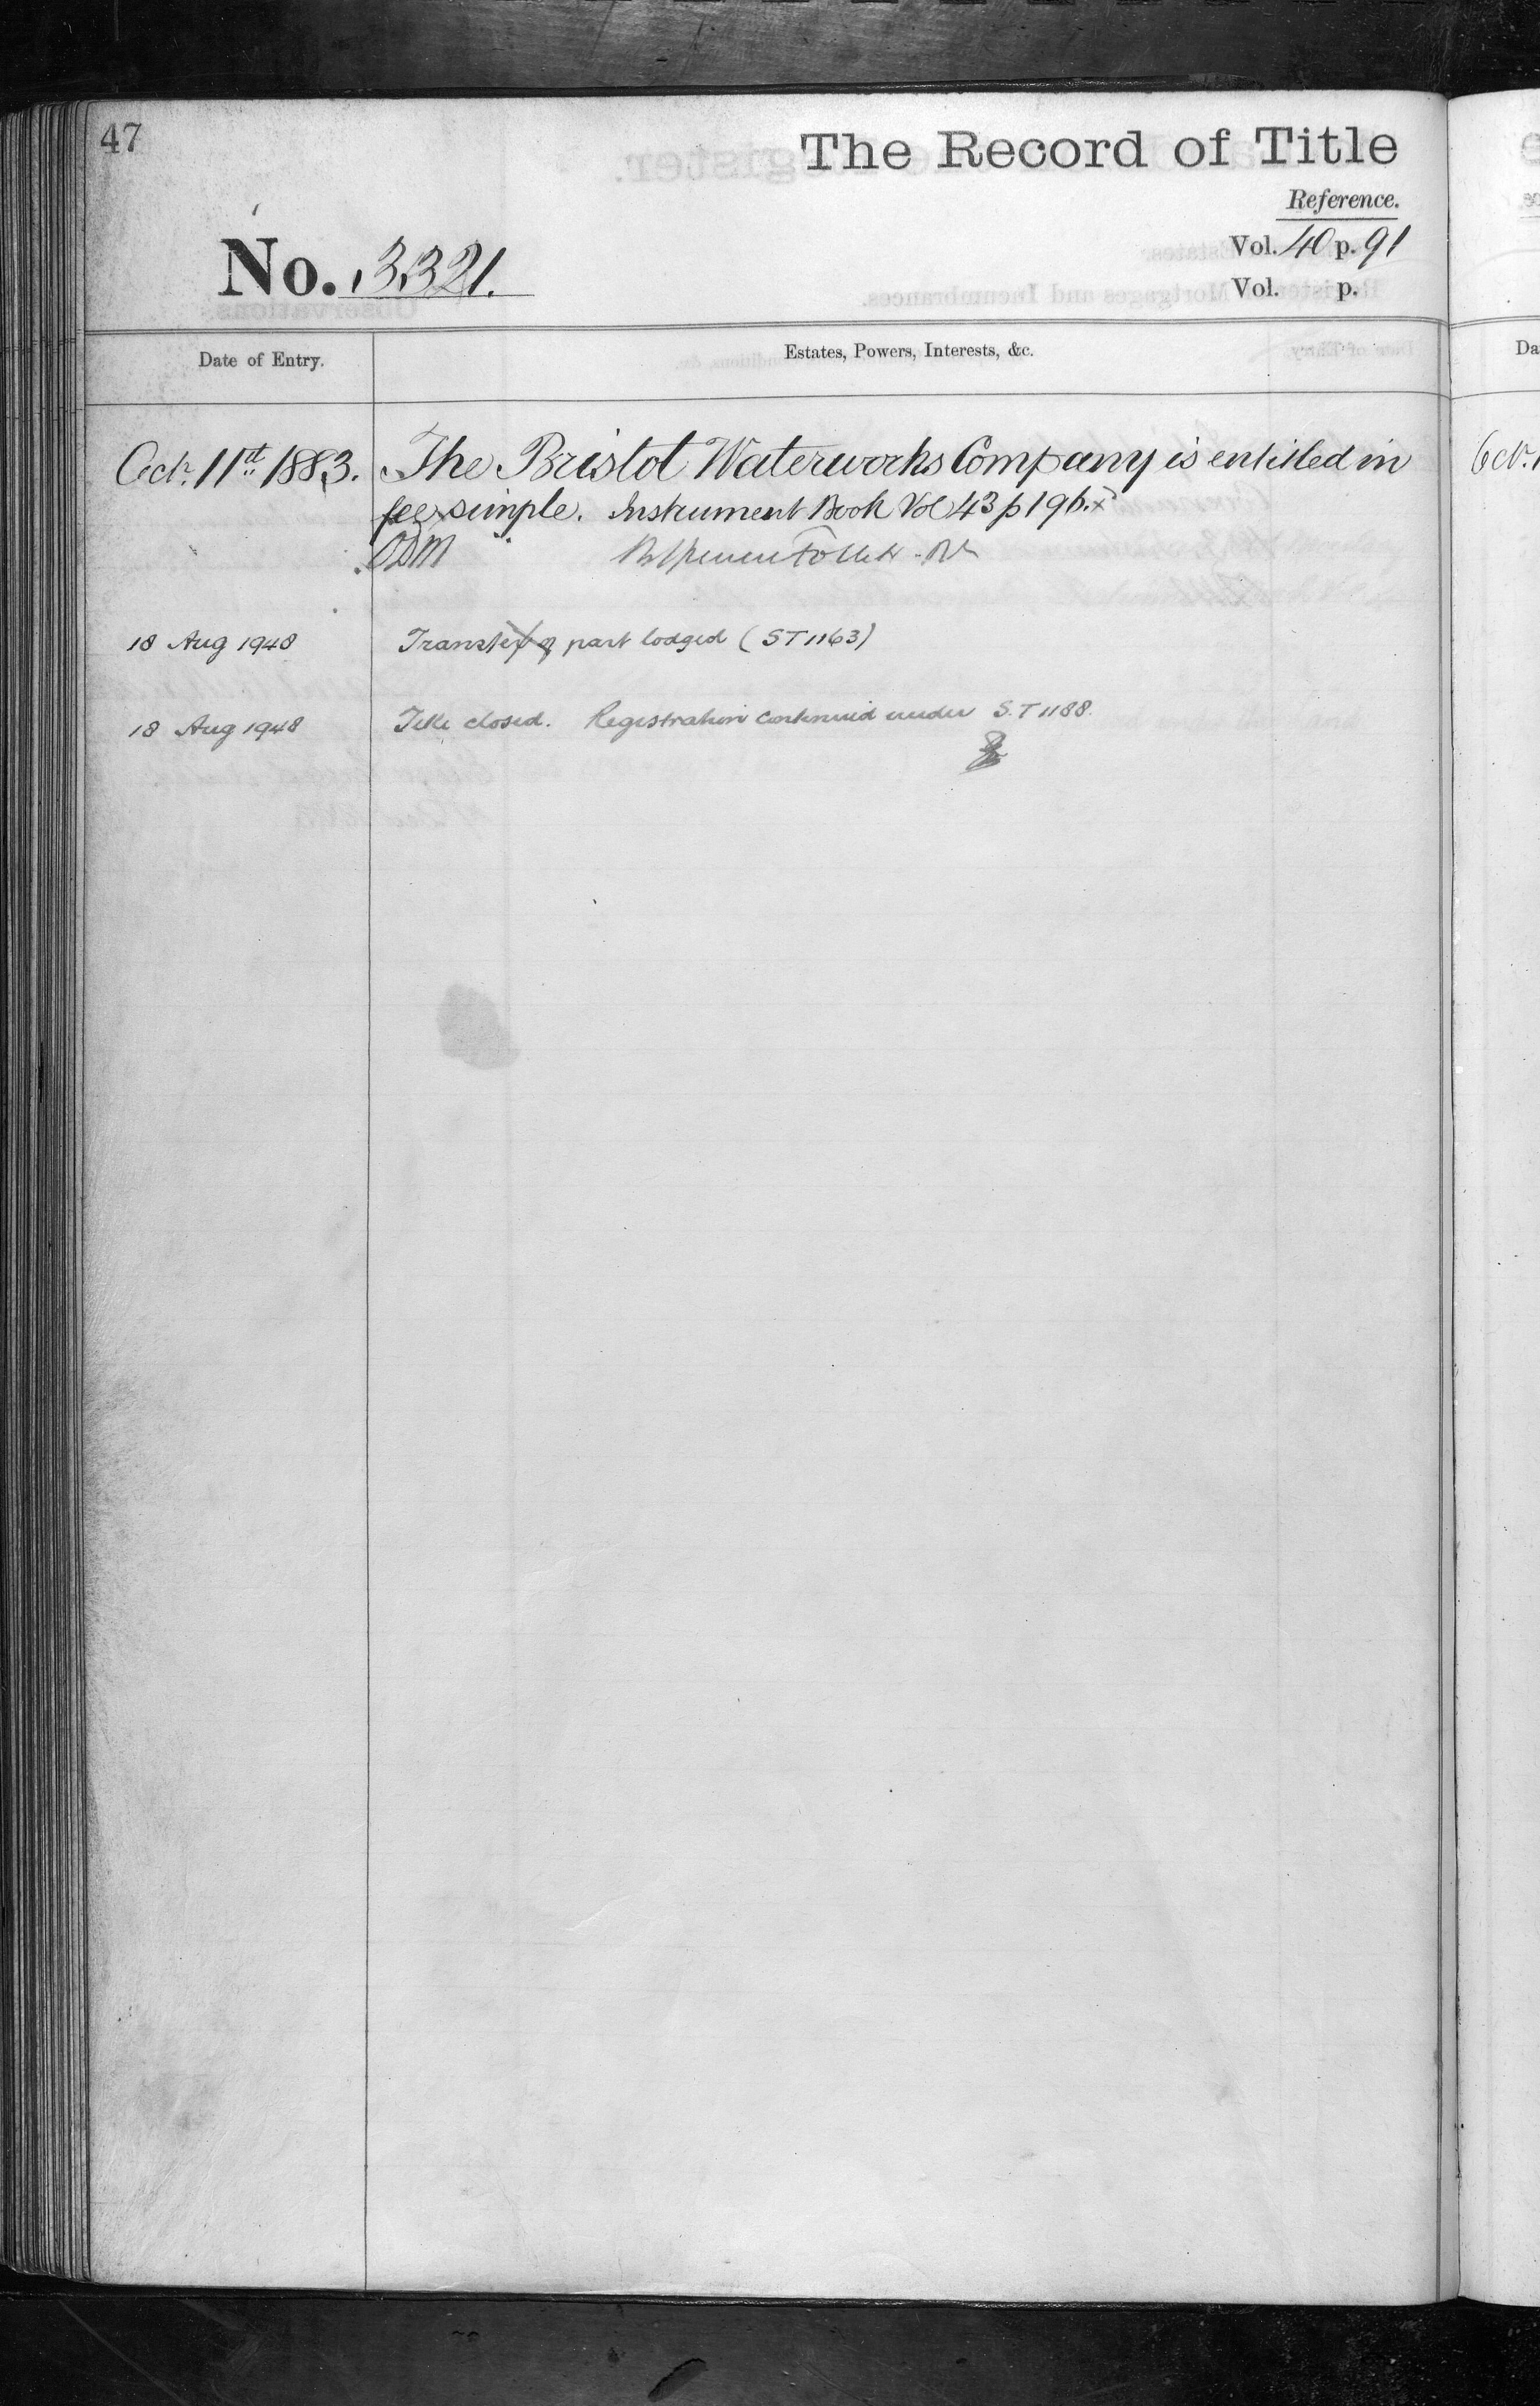 47
The Record of Title
Reference.
Vol. 40 p. 91
No. 3321.
Vol. p.
Date of Entry.
Estates, Powers, Interests, &c.
Oct. 11th 1883. The Bristol Waterworks Company is entitled in
fee simple. Instrument Book Vol 43 p 196.x
ODM
18 Aug 1948 Transfer of part lodged (ST 1163)
18 Aug 1948 Title closed. Registration continued under S.T 1188.